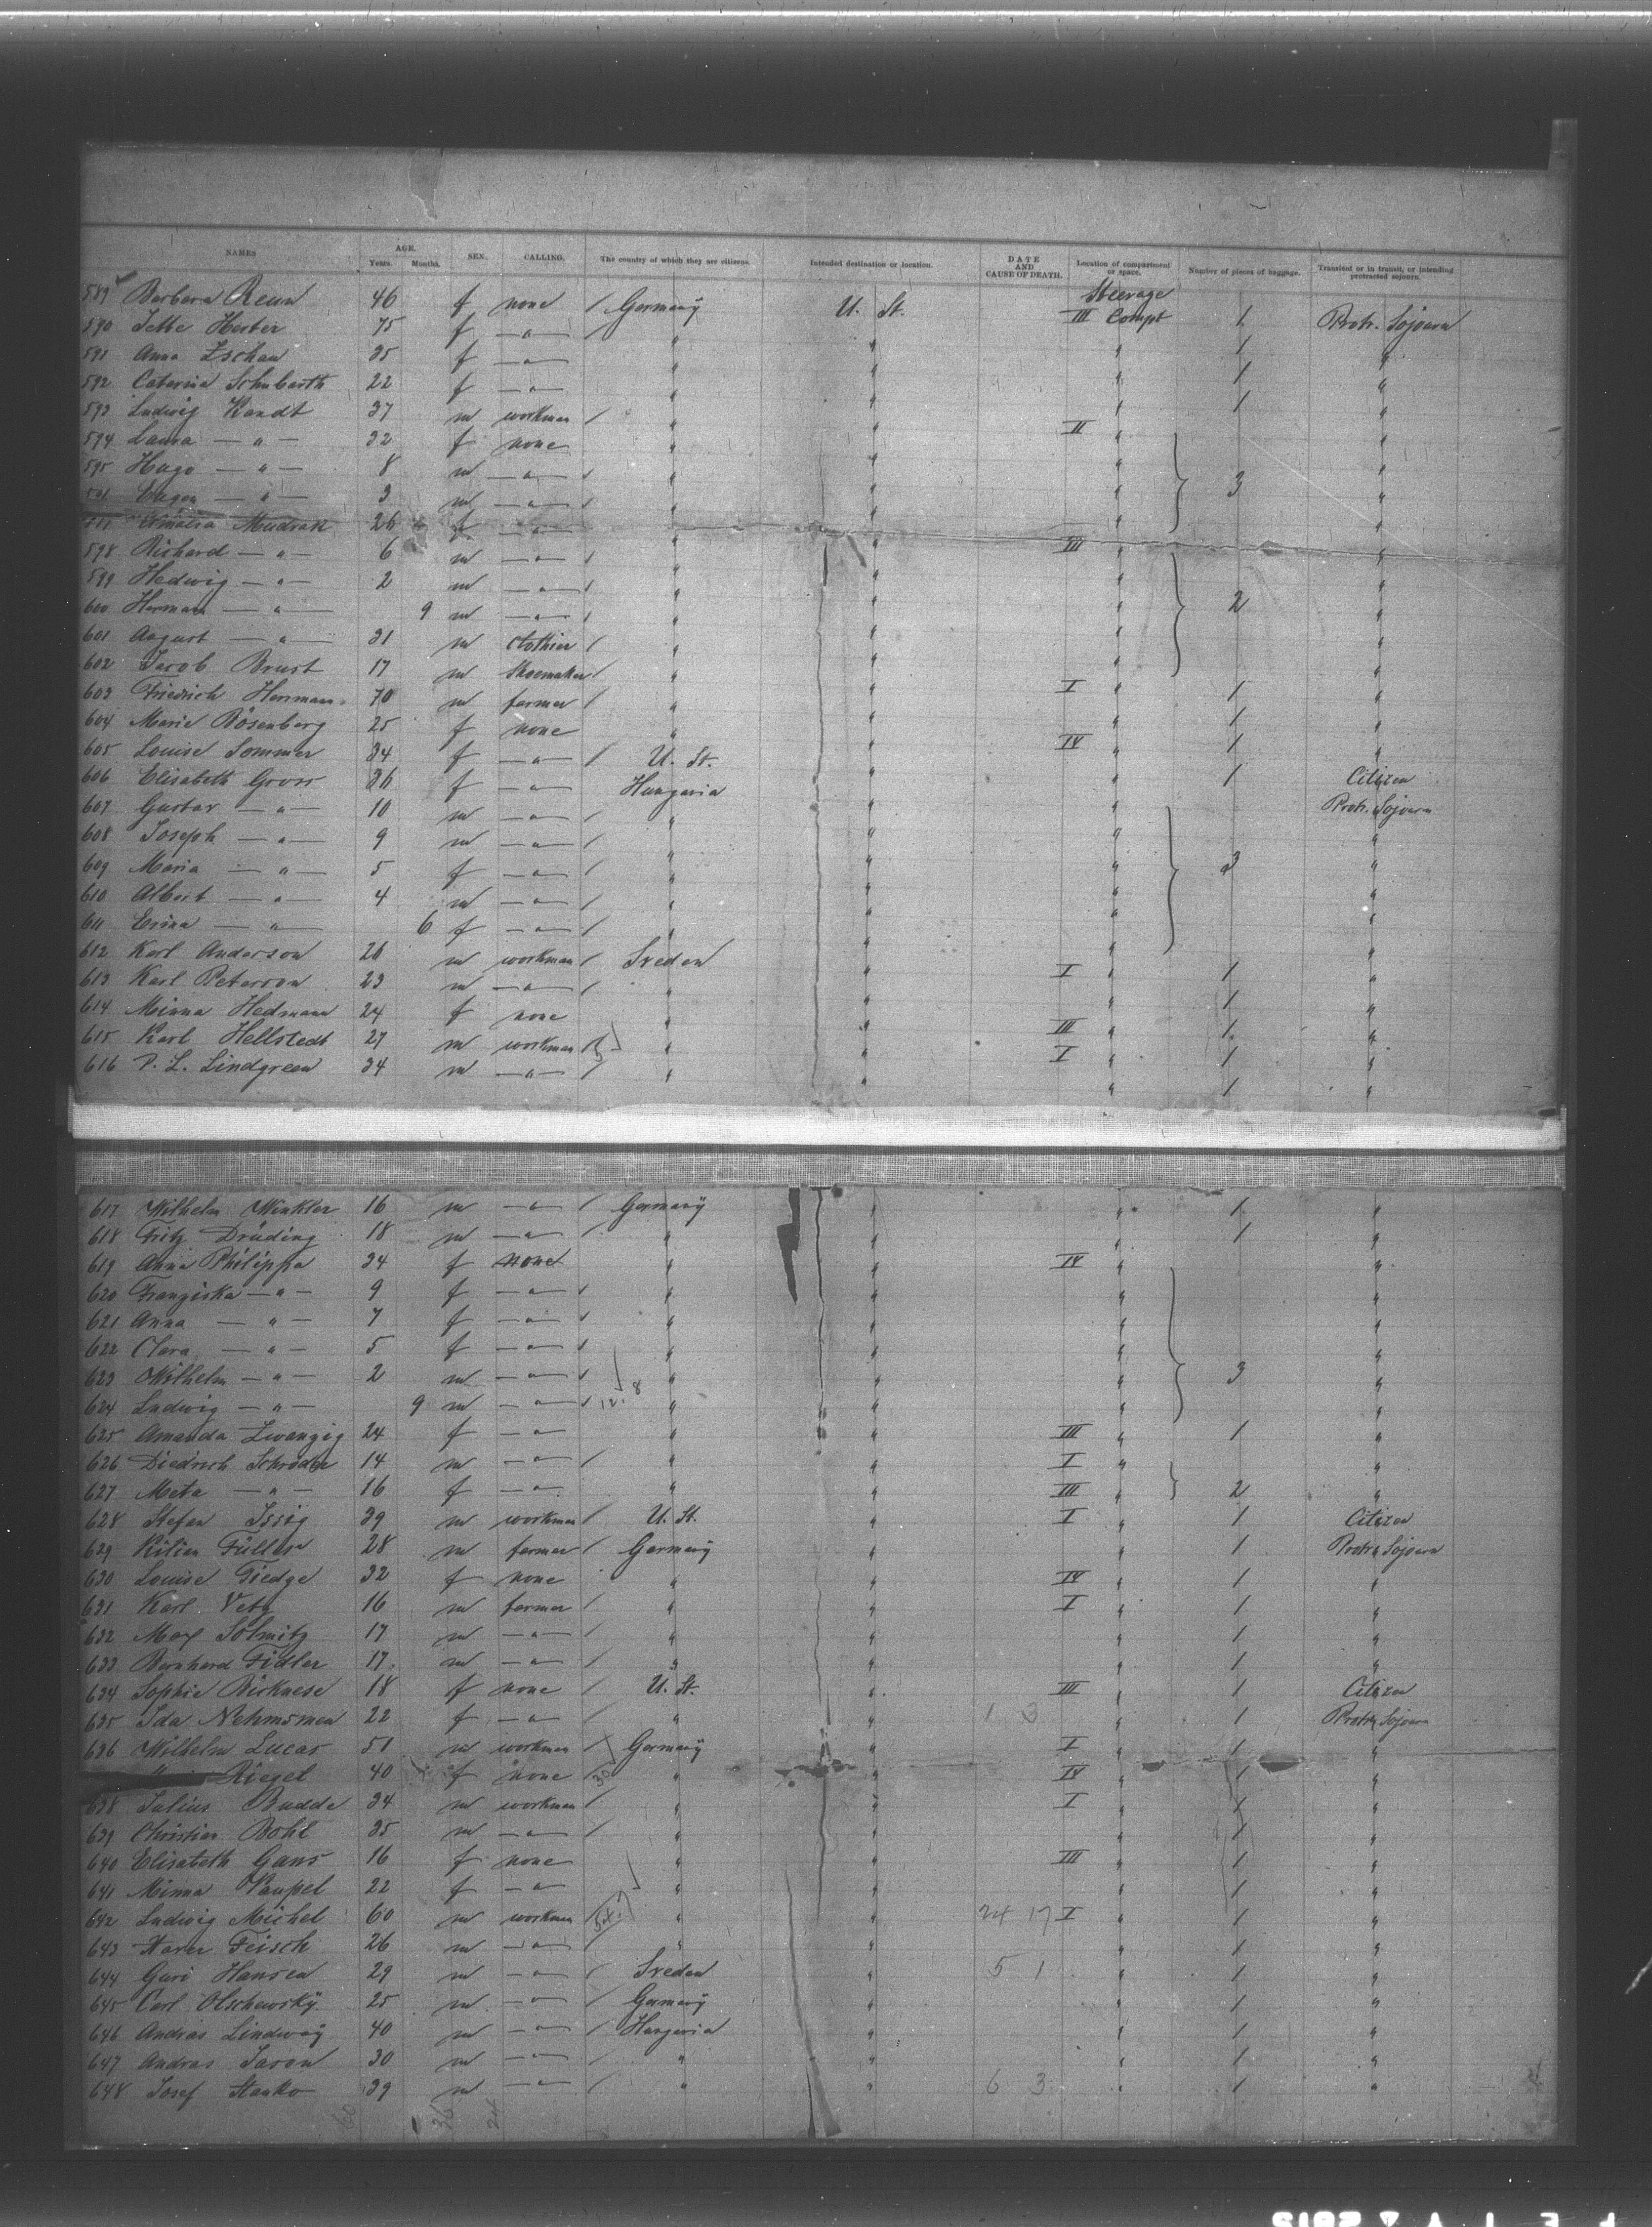 NAMES AGE. Years. Months. SEX. CALLING. The country of which they are citizens. Intended destination or location. DATE AND CAUSE OF DEATH. Location of compartment or space. Number of pieces of baggage. Transient or in transit, or intending protracted sojourn.
589 Barbara Renn 46 f none / Germany U. St. Steerage III Compt 1 Protr. Sojourn
590 Jette Herter 75 f — " — / " " " 1 "
591 Anna Zschau 35 f — " — " " " 1 "
592 Catarina Schubarth 22 f — " — " " " 1 "
593 Ludwig Kandt 37 m workman / " " II "
594 Laura — " — 32 f none " " " "
595 Hugo — " — 8 m — " — / " " " 3 "
Eugen — " — 3 m — " — / " " " "
Amalia Mudrak 26 f — " — " " III " "
598 Richard — " — 6 m — " — / " " " "
599 Hedwig — " — 2 m — " — / " " " 2 "
600 Herman — " — 9 m — " — / " " " "
601 August — " — 31 m clothier / " " " "
602 Jacob Brust 17 m shoemaker / " " I " 1 "
603 Friedrich Herrmann 70 m farmer / " " " 1 "
604 Marie Bösenberg 25 f none " " IV " 1 "
605 Louise Sommer 34 f — " — / U. St. " " 1 Citizen
606 Elisabeth Gross 36 f — " — Hungaria " " Protr. Sojourn
607 Gustav — " — 10 m — " — / " " " "
608 Joseph — " — 9 m — " — / " " " 3 "
609 Maria — " — 5 f — " — / " " " "
610 Albert — " — 4 m — " — / " " " "
611 Erina — " — 6 f — " — / " " " "
612 Karl Anderson 26 m workman / Sveden " I " 1 "
613 Karl Peterson 23 m — " — / " " " 1 "
614 Minna Hedmann 24 f none " " III " 1 "
615 Karl Hellstedt 27 m workman / " " I " 1 "
616 P. L. Lindgreen 34 m — " — / " " " 1 "
617 Wilhelm Winkler 16 m — " — / Germany " " 1 "
618 Fritz Drüding 18 m — " — / " " " 1 "
619 Anna Philippa 34 f none " " IV " "
620 Franziska — " — 9 f — " — / " " " "
621 Anna — " — 7 f — " — / " " " "
622 Clara — " — 5 f — " — / " " " "
623 Wilhelm — " — 2 m — " — / " " " 3 "
624 Ludwig — " — 9 m — " — / 12. 8 " " " "
625 Amanda Zwanzig 24 f — " — " " III " 1 "
626 Diedrich Schröder 14 m — " — / " " I " "
627 Meta — " — 16 f — " — " " III " 2 "
628 Stefan Issig 39 m workman / U. St. " I " 1 Citizen
629 Kilian Füller 28 m farmer / Germany " " 1 Protr. Sojourn
630 Louise Tiedge 32 f none " " IV " 1 "
631 Karl Vetz 16 m farmer / " " I " 1 "
632 Max Solmitz 17 m — " — / " " " 1 "
633 Bernhard Fidler 17 m — " — / " " " 1 "
634 Sophie Bicknese 18 f none / U. St. " III " 1 Citizen
635 Ida Nehmsmen 22 f — " — " " 1 3 " 1 Protr. Sojourn
636 Wilhelm Lucas 51 m workman / Germany " I " 1 "
Riegel 40 f none 30 " " IV " 1 "
638 Julius Budde 34 m workman / " " I " 1 "
639 Christian Bohl 35 m — " — / " " " 1 "
640 Elisabeth Gans 16 f none " " III " 1 "
641 Minna Vaupel 22 f — " — " " " 1 "
642 Ludwig Michel 60 m workman " " 24 17 I " 1 "
643 Xaver Feisch 26 m — " — / " " " 1 "
644 Gari Hansen 29 m — " — / Sveden " 5 1 " 1 "
645 Carl Olschewsky 25 m — " — / Germany " " 1 "
646 Andras Lindway 40 m — " — / Hungaria " " 1 "
647 Andras Jason 30 m — " — / " " " 1 "
648 Josef Stanko 39 m — " — / " " 6 3 " 1 "
60 36 24